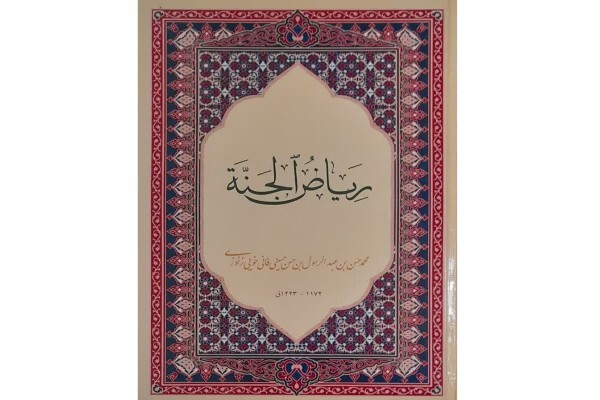 ریاضُ الجَنَّة
محمد حسن بن عبد الرسول بن حسن حسینی فانی خویی زنوزی
۱۱۷۲ - ۱۲۲۳ق